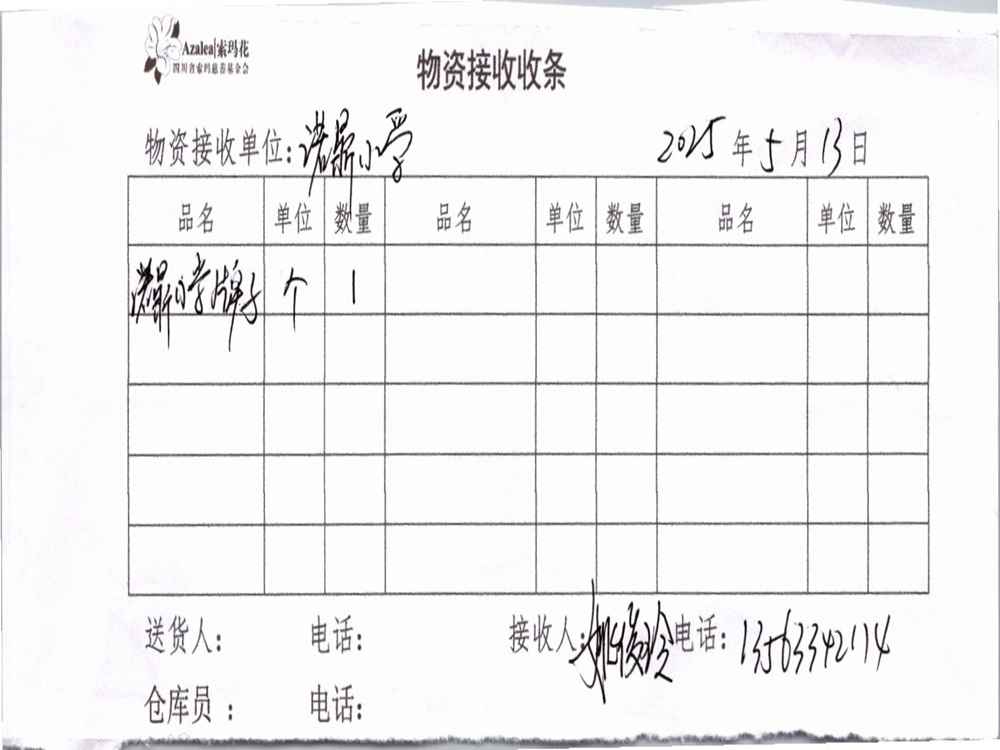 Azalea|索玛花
四川省索玛慈善基金会
物资接收收条
物资接收单位:诺鼎小学 2025年5月13日
品名 单位 数量 品名 单位 数量 品名 单位 数量
诺鼎小学牌子 个 1
送货人: 电话: 接收人:姚俊玲 电话:13563342114
仓库员: 电话: